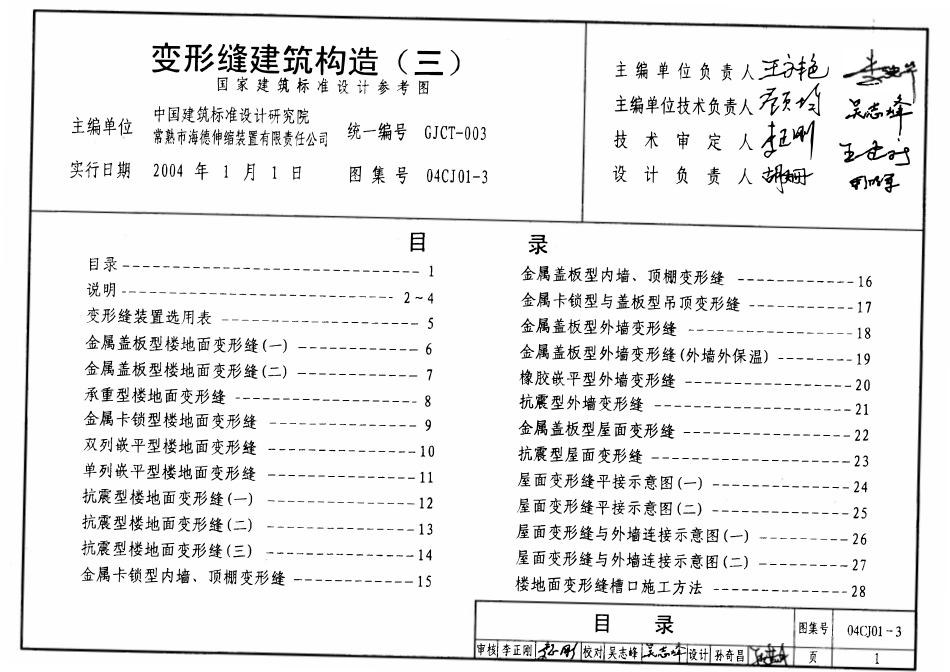 变形缝建筑构造（三）
国家建筑标准设计参考图
主编单位 中国建筑标准设计研究院
常熟市海德伸缩装置有限责任公司
统一编号 GJCT-003
实行日期 2004 年 1 月 1 日 图集号 04CJ01-3
主编单位负责人
主编单位技术负责人
技术审定人
设计负责人 胡姗
吴志峰
目 录
目录 1
说明 2~4
变形缝装置选用表 5
金属盖板型楼地面变形缝(一) 6
金属盖板型楼地面变形缝(二) 7
承重型楼地面变形缝 8
金属卡锁型楼地面变形缝 9
双列嵌平型楼地面变形缝 10
单列嵌平型楼地面变形缝 11
抗震型楼地面变形缝(一) 12
抗震型楼地面变形缝(二) 13
抗震型楼地面变形缝(三) 14
金属卡锁型内墙、顶棚变形缝 15
金属盖板型内墙、顶棚变形缝 16
金属卡锁型与盖板型吊顶变形缝 17
金属盖板型外墙变形缝 18
金属盖板型外墙变形缝(外墙外保温) 19
橡胶嵌平型外墙变形缝 20
抗震型外墙变形缝 21
金属盖板型屋面变形缝 22
抗震型屋面变形缝 23
屋面变形缝平接示意图(一) 24
屋面变形缝平接示意图(二) 25
屋面变形缝与外墙连接示意图(一) 26
屋面变形缝与外墙连接示意图(二) 27
楼地面变形缝槽口施工方法 28
目 录 图集号 04CJ01-3
审核 李正刚 校对 吴志峰 吴志峰 设计 孙奇昌 页 1